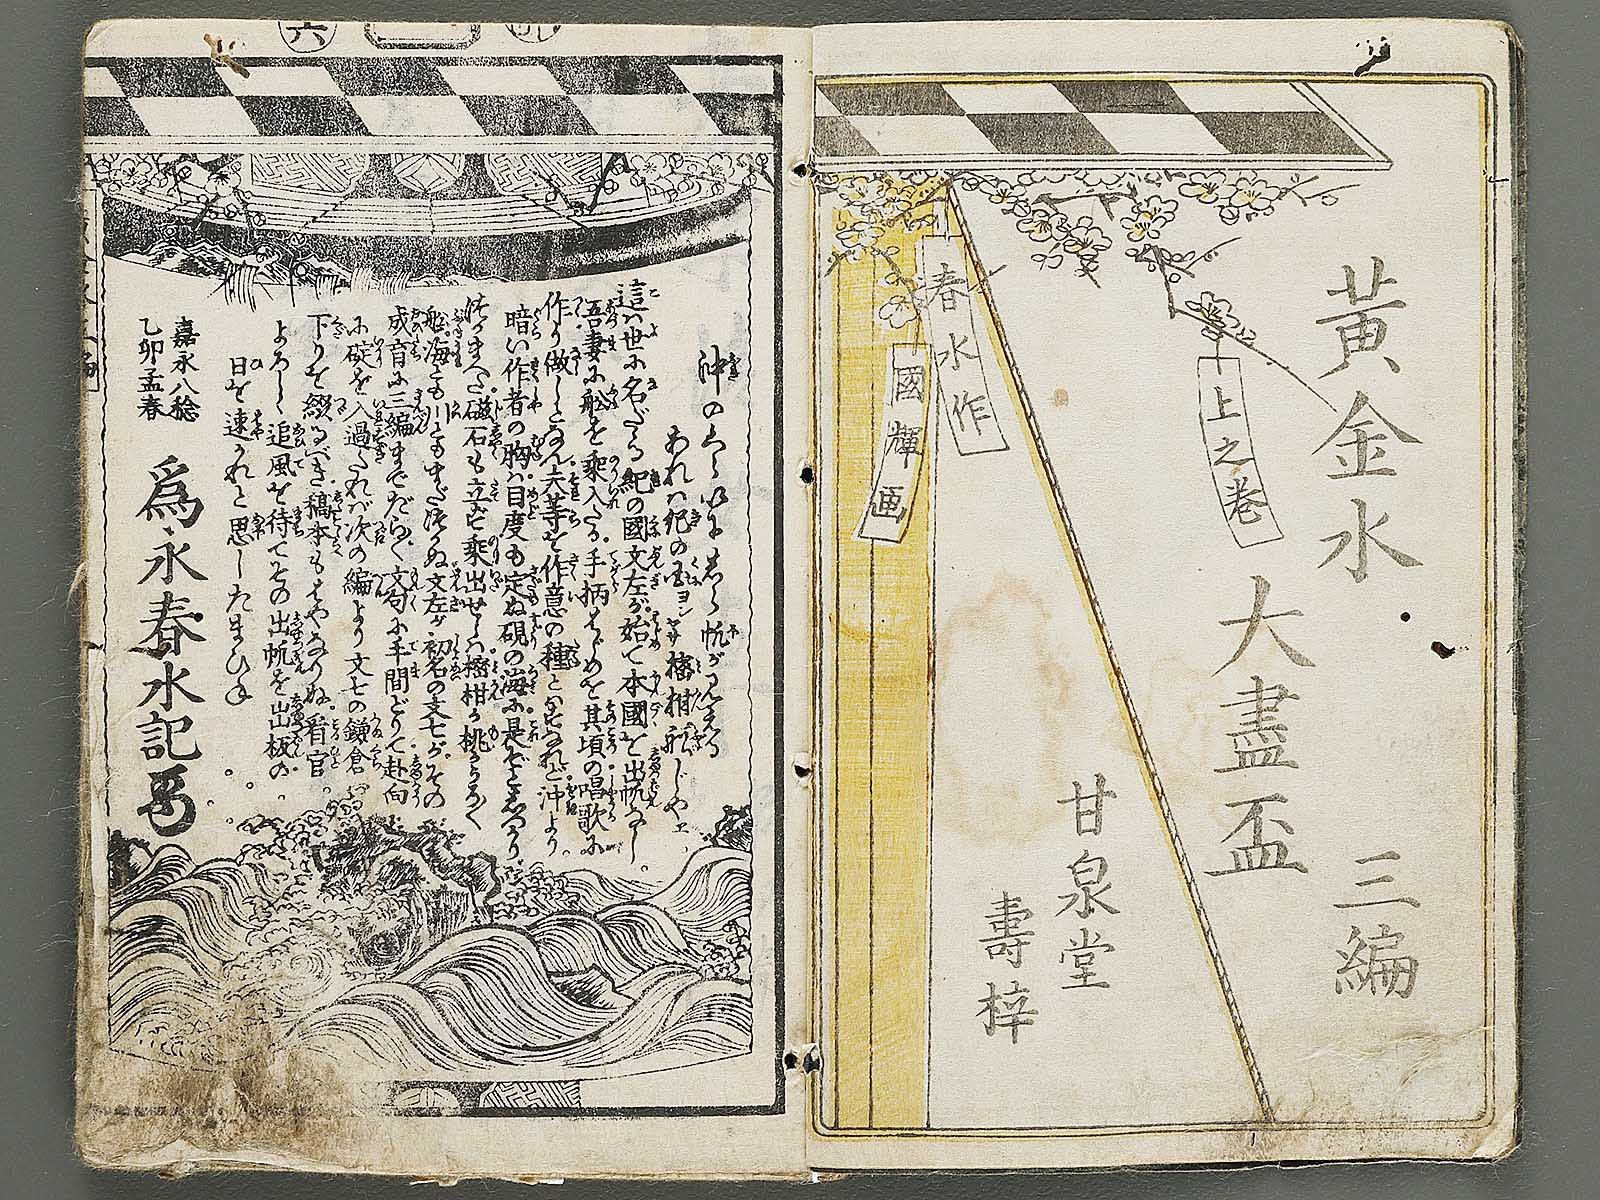 黄金水
大盡盃
三編
上之巻
甘泉堂
壽梓
春水作
國輝画
六
沖のくらいにしら帆がみえる
あれハ紀の国ヨンヤサ蜜柑船じやエ
這ハ世に名だたる紀の國文左が始て本國を出帆なし
吾妻に舩を乗入たる手柄はじめを其頃の唱歌に
作り做しとなん夫等を作意の種とハすれど沖より
暗い作者の胸ハ目度も定ぬ硯の海に是ぞと
磁石も立ず乗出せしハ蜜柑か桃か
船海とも川ともまだつかぬ文左が初名の文七がその
成育に三編までだらく文句に手間どりて赴向
に碇を入過たれバ次の編より文七の鎌倉
下りを綴るべき稿本もはやなりぬ看官
よろしく追風を待てその出帆を出板の
日を速かれと思したまひね
嘉永八稔
乙卯孟春
爲永春水記